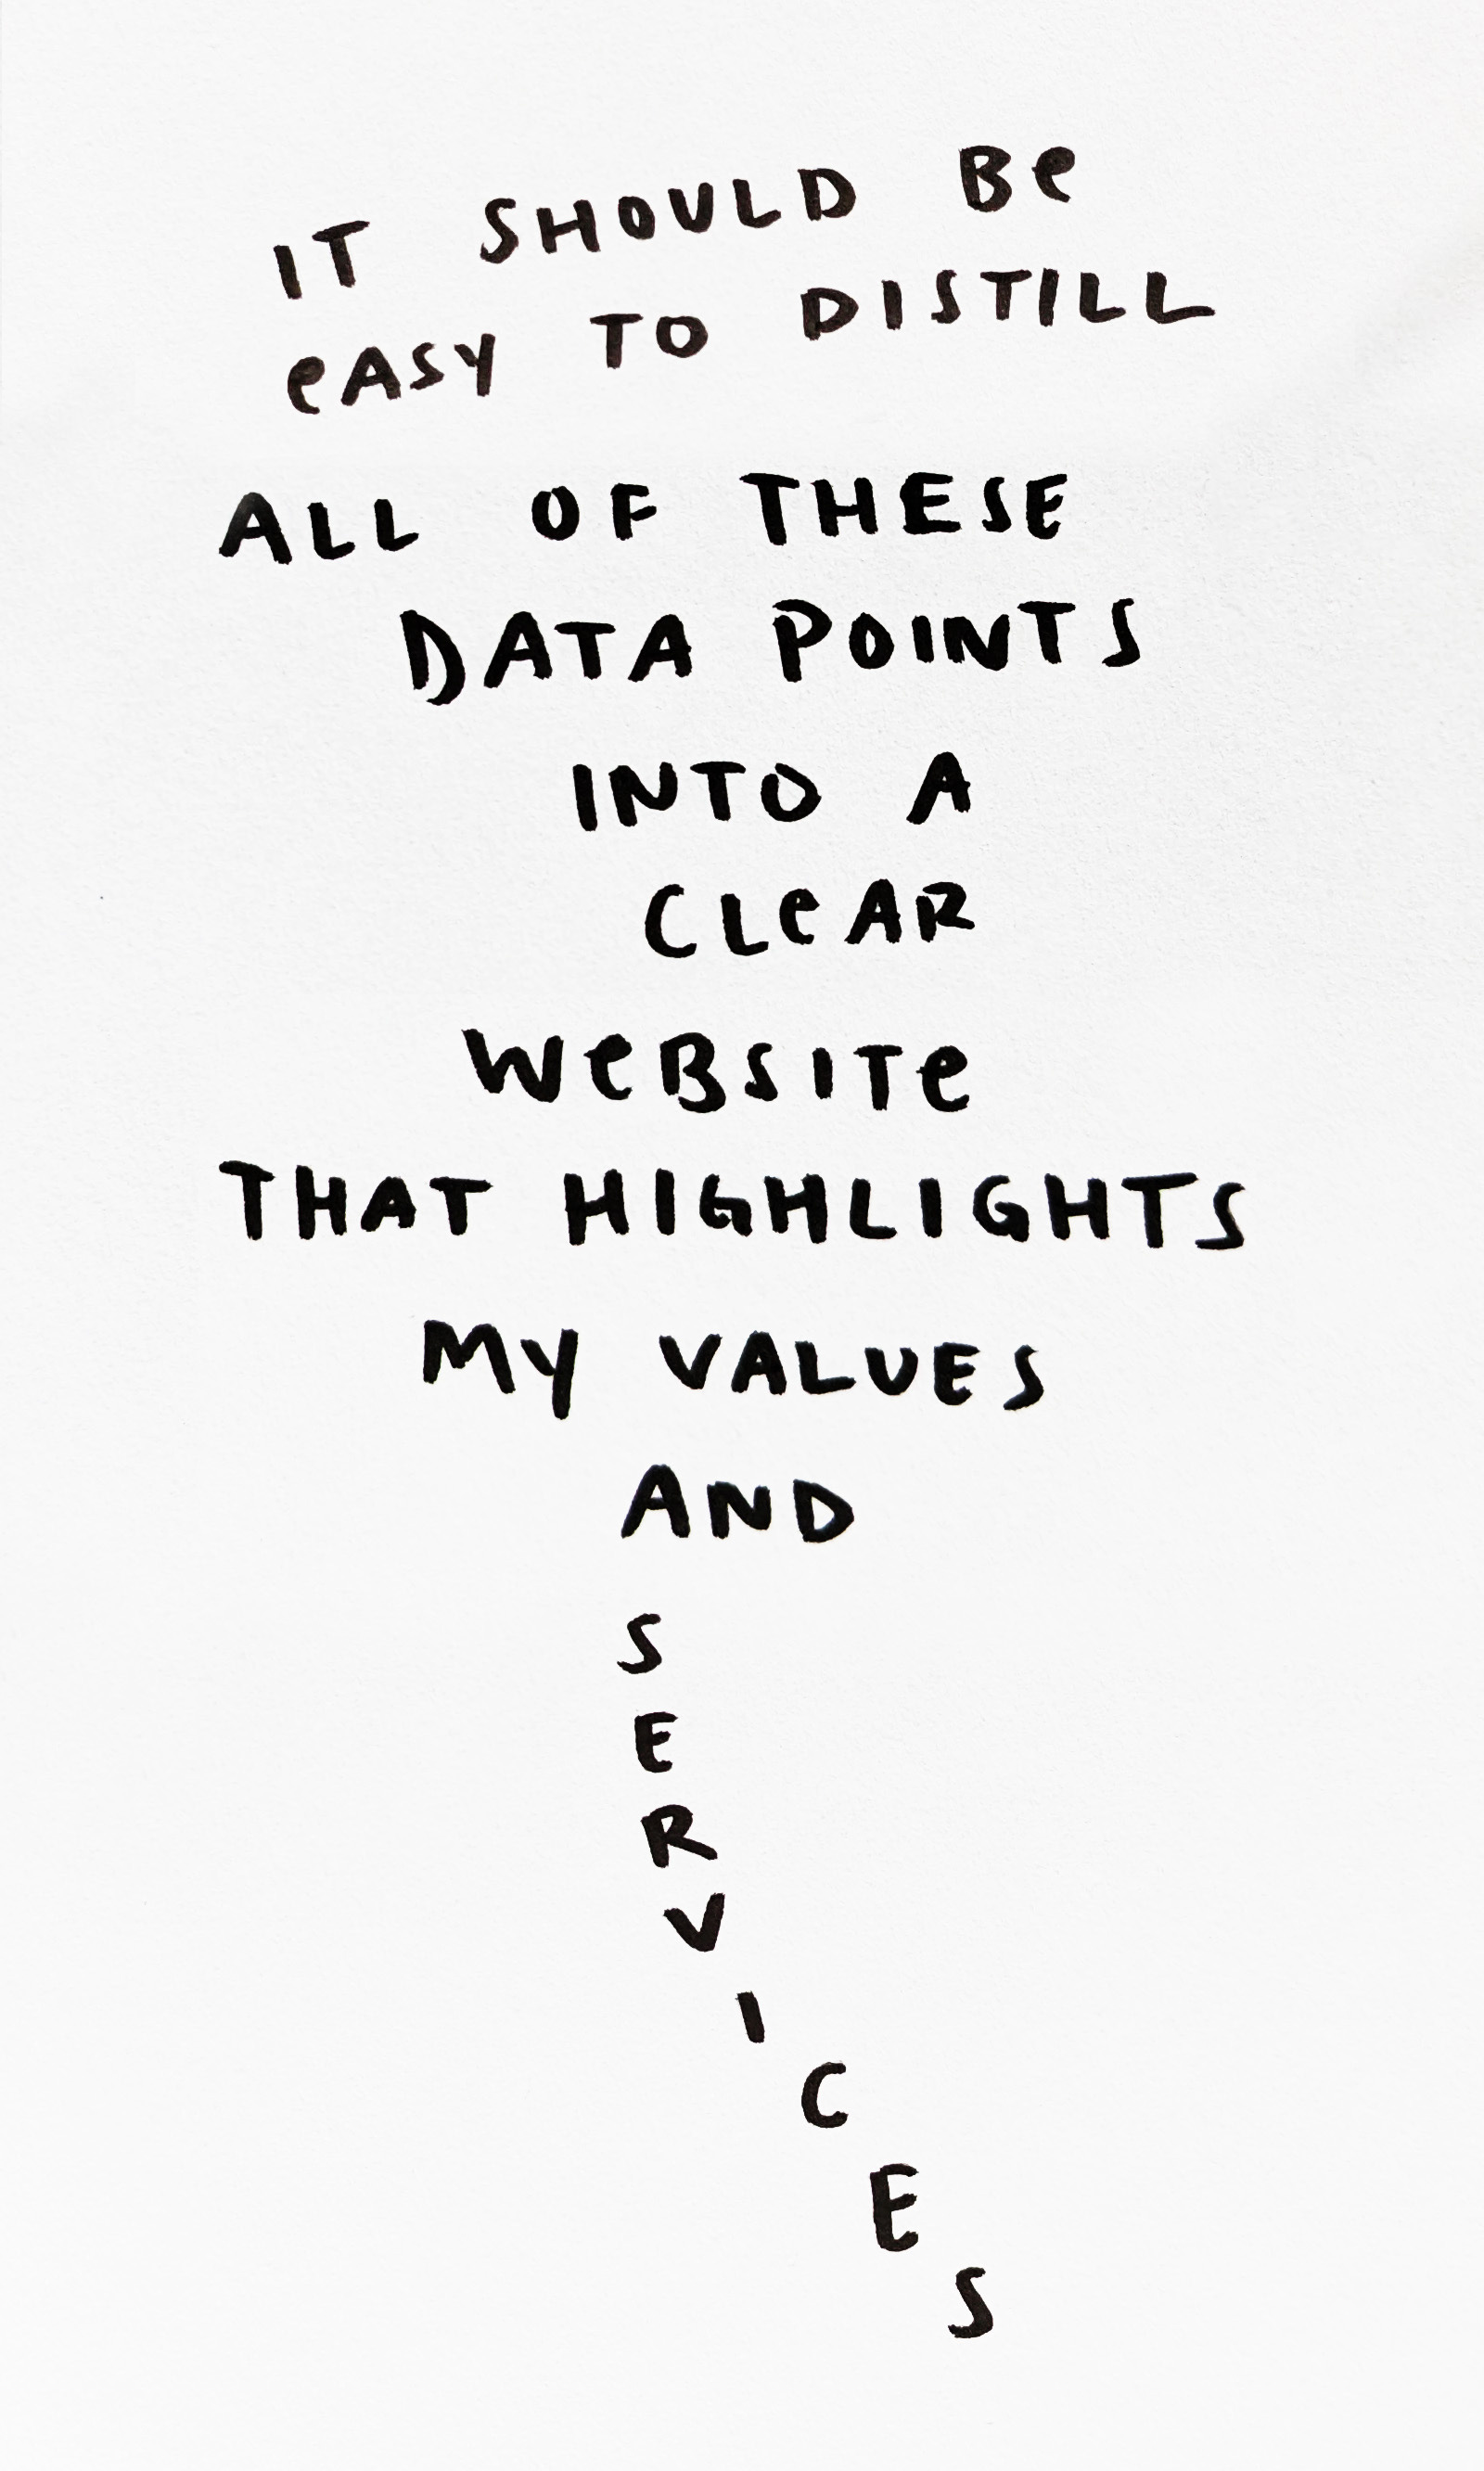 IT SHOULD Be
eASY TO DISTILL
ALL OF THESE
DATA POINTS
INTO A
CLeAR
WeBSITe
THAT HIGHLIGHTS
MY VALUES
AND
SERVICES